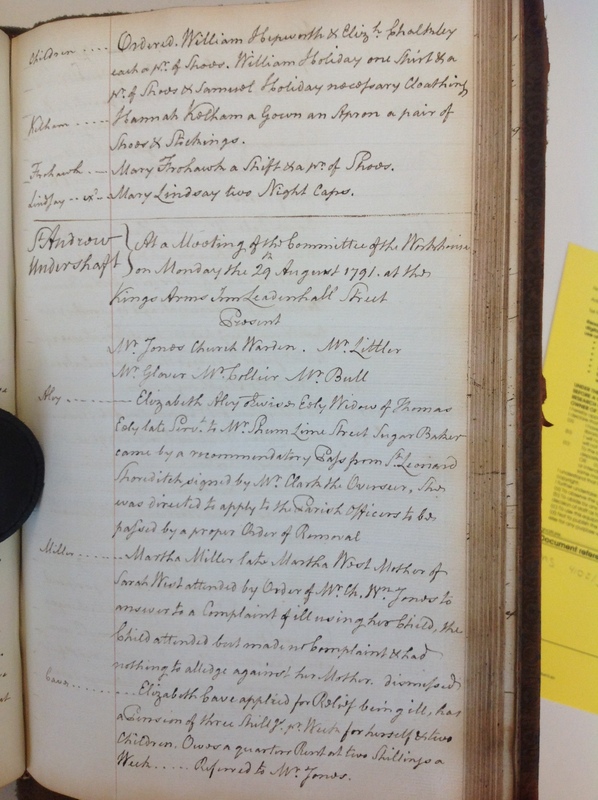 Children .... Ordered. William Hepworth & Elizth. Chalkley
each a pr. of Shoes. William Holiday one Shirt & a
pr. of Shoes & Samuel Holiday necessary Cloathing
Kelham .... Hannah Kelham a Gown an Apron a pair of
Shoes & Stockings.
Frohawk .. Mary Frohawk a Shift & a pr. of Shoes.
Lindsay .. Mary Lindsay two Night Caps.
St. Andrew
Undershaft
At a Meeting of the Committee of the Workhouse
on Monday the 29th August 1791. at the
Kings Arms Inn Leadenhall Street
Present
Mr. Jones Church Warden. Mr. Littler
Mr. Glover Mr. Collier Mr. Bull
Aloy ........ Elizabeth Aloy otwise Edy Widow of Thomas
Edy late Servt. to Mr. Shum Lime Street Sugar Baker
came by a recommendatory Pass from St. Leonard
Shoreditch signed by Mr. Clark the Overseer, She
was directed to apply to the Parish Officers to be
passed by a proper Order of Removal
Miller ........ Martha Miller late Martha West Mother of
Sarah West attended by Order of Mr. Ch. Wn. Jones to
answer to a Complaint of ill using her Child, the
Child attended but made no Complaint & had
nothing to alledge against her Mother. dismissed
Cave ........ Elizabeth Cave applied for Relief being ill, has
a Pension of three Shillgs. pr. Week for herself & two
Children. Owes a quarters Rent at two Shillings a
Week ..... Referred to Mr. Jones.
Document